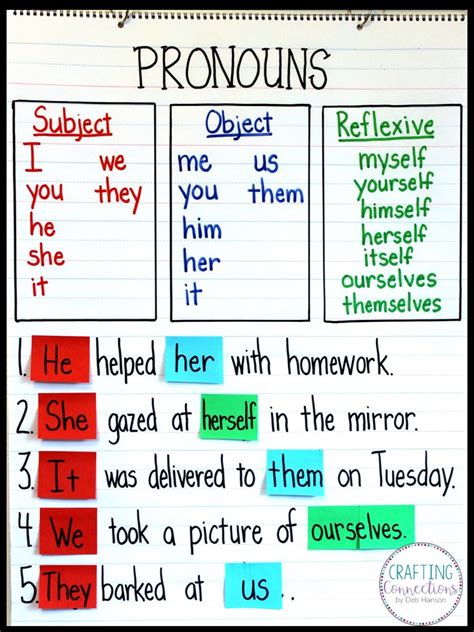 PRONOUNS
Subject
I we
you they
he
she
it
Object
me us
you them
him
her
it
Reflexive
myself
yourself
himself
herself
itself
ourselves
themselves
1. He helped her with homework.
2. She gazed at herself in the mirror.
3. It was delivered to them on Tuesday.
4 We took a picture of ourselves.
5. They barked at us . .
CRAFTING
Connections
by Deb Hanson